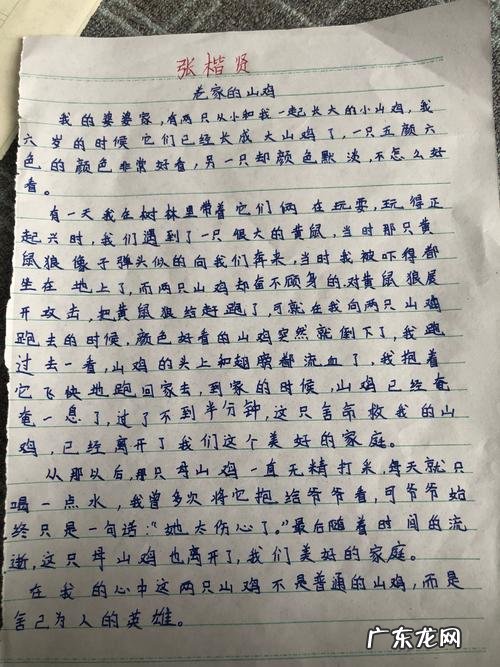 张楷贤
老家的山鸡
我的婆婆家,有两只从小和我一起长大的小山鸡,我
六岁的时候它们已经长成大山鸡了,一只五颜六
色的颜色非常好看,另一只却颜色默淡,不怎么好
看。
有一天我在树林里带着它们俩在玩耍,玩得正
起兴时,我们遇到了一只很大的黄鼠,当时那只黄
鼠狼像子弹头似的向我们奔来,当时我被吓得都
坐在地上了,而两只山鸡却奋不顾身的对黄鼠狼展
开攻击,把黄鼠狼给赶跑了,可就在我向两只山鸡
跑去的时候,颜色好看的山鸡突然就倒下了,我跑
过去一看,山鸡的头上和翅膀都流血了,我抱着
它飞快地跑回家去,到家的时候,山鸡已经奄
奄一息了,过了不到半分钟,这只舍命救我的山
鸡,已经离开了我们这个美好的家庭。
从那以后,那只母山鸡一直无精打采,每天就只
喝一点水,我曾多次将它抱给爷爷看,可爷爷始
终只是一句话:“她太伤心了。”最后随着时间的流
逝,这只母山鸡也离开了,我们美好的家庭。
在我的心中这两只山鸡不是普通的山鸡,而是
舍己为人的英雄。
广东龙网